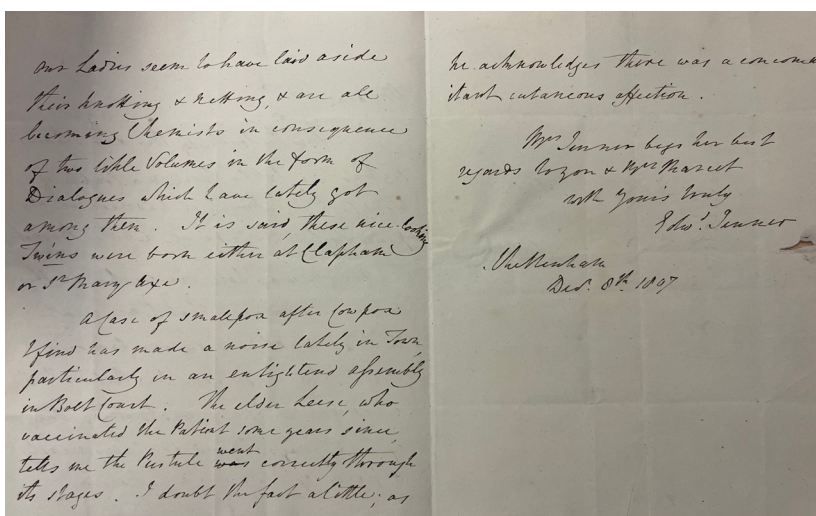 our Ladies seem to have laid aside
their knotting & netting, & are all
becoming Chemists in consequence
of two little Volumes in the form of
Dialogues which have lately got
among them. It is said these nice-looking
Twins were born either at Clapham
or St Mary Axe.
A Case of smallpox after Cowpox
I find has made a noise lately in Town,
particularly in an enlightend assembly
in Bolt Court. The elder Leese, who
vaccinated the Patient some years since,
tells me the Pustule was went correctly through
its stages. I doubt the fact a little; as
he acknowledges there was a concom
itant cutaneous affection.
Mrs Jenner begs her best
regards to you & Mrs Marcet
with Yours truly
Edwd. Jenner
Cheltenham
Decr. 8th. 1807